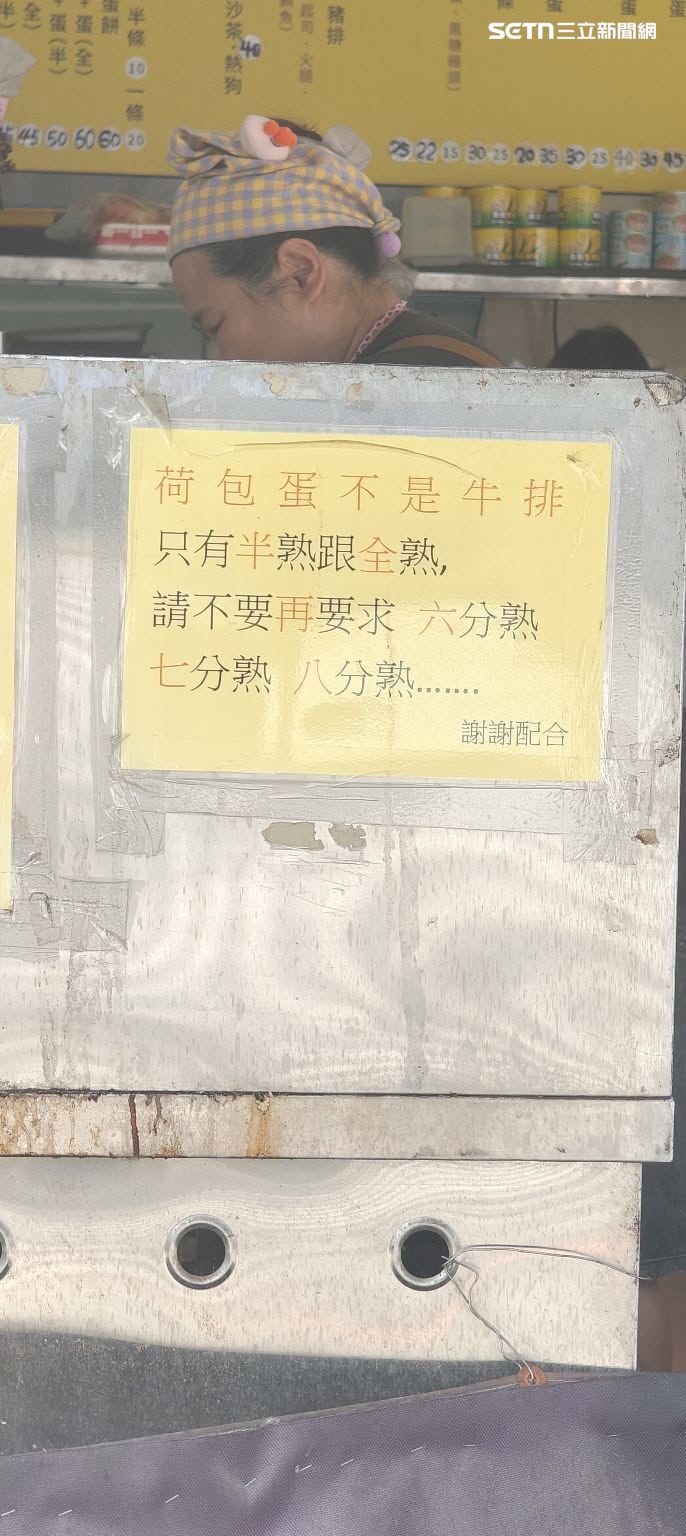 SETN三立新聞網
豬排
沙茶・熱狗
40
蛋餅
半條 10 一條 20
蛋(全)
蛋(半)
45 50 60 60
25 22 15 30 25 20 35 30 25 40 30 45
荷包蛋不是牛排
只有半熟跟全熟,
請不要再要求 六分熟
七分熟 八分熟.......
謝謝配合